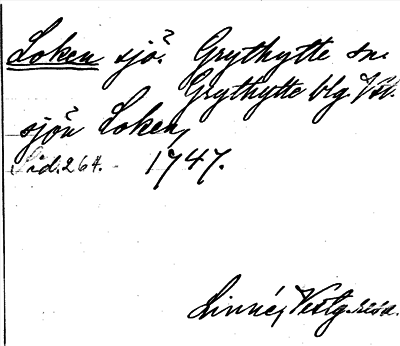 Loken sjö. Grythytte sn.
Grythytte blg Vstl.
sjön Loken,
Sid. 264. 1747.
Linné, Vestg. resa.